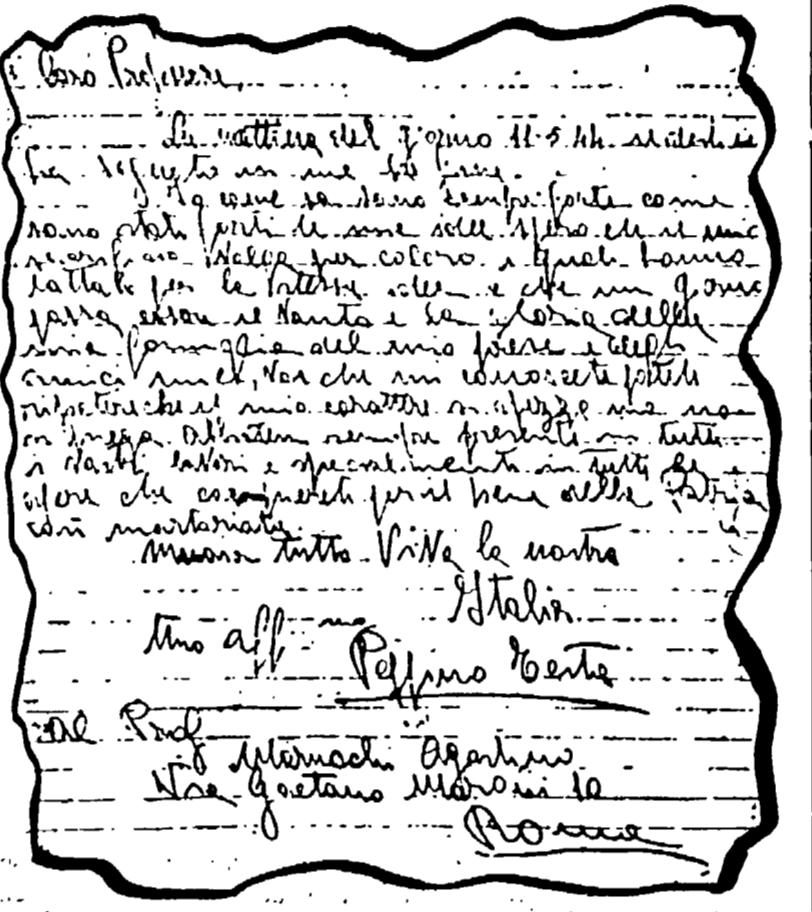 Caro Professore,
La mattina del giorno 11.5.44
fu eseguita su me
Io come sono sempre forte come
sono stati forti le mie idee spero che il mio
sacrificio valga per coloro i quali hanno
lottato per la stessa idea e che un giorno
possa essere il vanto e la gloria della
mia famiglia del mio paese e degli
amici miei, voi che mi conoscete potete
ripetere che il mio carattere si spezza ma non
si piega presente in tutti
i vostri lavori e specialmente in tutte le
opere che compirete per il bene della Patria
così martoriata.
Muoia tutto Viva la nostra
Italia
tuo aff mo
Peppino Testa
Al Prof
Agostino
Via Gaetano 10
Roma